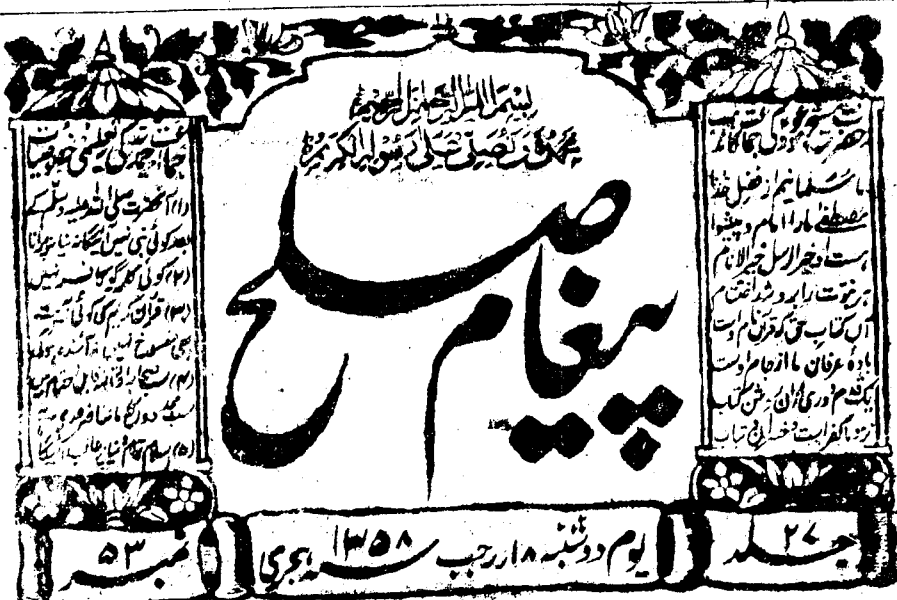 بسم الله الرحمن الرحیم
نحمدہ و نصلی علی رسولہ الکریم
پیغام صلح
ما مسلمانیم از فضل خدا
مصطفےٰ مارا امام و پیشوا
ہست او خیر الرسل خیر الانام
ہر نبوت را برو شد اختتام
آں کتاب حق کہ قرآن نام اوست
بادۂ عرفان ما از جام اوست
یک قدم دوری ازاں روشن کتاب
نزد ما کفر است و خسران و تباب
جماعت احمدیہ کی
(۱) آنحضرت صلی اللہ علیہ وسلم کے
بعد کوئی نبی نہیں آئیگا نہ نیا نہ پرانا
(۲) کوئی کلمہ گو کافر نہیں
(۳) قرآن کریم کی کوئی آیت
بھی منسوخ نہیں نہ آئندہ ہوگی
(۴) سب صحابہ اور ائمہ قابل احترام ہیں
(۵) اسلام تمام دنیا پر غالب آئیگا
جلد ۲۷
یوم دوشنبہ ۱۸ رجب ۱۳۵۸ ہجری
نمبر ۵۳